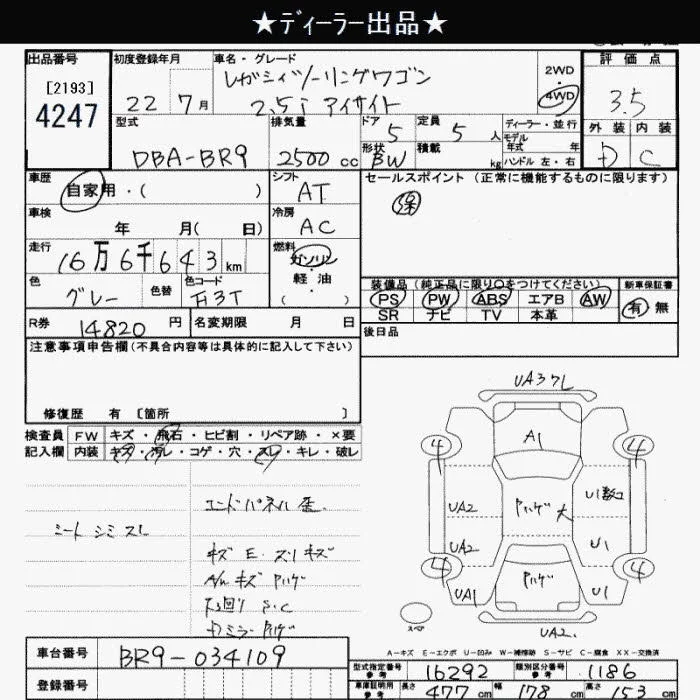 ★ディーラー出品★
出品番号
[2193]
4247
初度登録年月
22 7月
車名・グレード
レガシィツーリングワゴン
2.5i アイサイト
2WD
・
4WD
評価点
3.5
外装 内装
D C
型式
DBA-BR9
排気量
2500 cc
ドア
5
形状
BW
定員
5 人
積載
kg
ディーラー・並行
モデル
年式 年
ハンドル 左・右
車歴
自家用・( )
シフト
AT
セールスポイント (正常に機能するものに限ります)
保
車検
年 月( 日)
冷房
AC
走行
16万6千643km
燃料
ガソリン
・
軽油
・
( )
色
グレー
色替
色コード
R券
14820 円
名変期限 月 日
装備品 (純正品に限り○をつけてください)
新車保証書
PS PW ABS エアB AW
有 無
SR ナビ TV 本革
後日品
注意事項申告欄(不具合内容等は具体的に記入して下さい)
修復歴 有 [箇所 ]
検査員
記入欄
FW キズ・飛石・ヒビ割・リペア跡・×要
内装 キズ・汚レ・コゲ・穴・スレ・キレ・破レ
エンドパネル歪.
シート シミ スレ
キズ E・スリキズ
A/W キズ ハゲ
下回り S.C
ドミラーハゲ
UA3 フL
4
A1
4
UA2
ハゲ 大
U1数コ
UA2
U1
4
ハゲ
4
UA1
U1
スペア
UA2.
A-キズ E-エクボ U-凹み W-補修跡 S-サビ C-腐食 XX-交換済
車台番号
BR9-034109
登録番号
型式指定番号
参考
16292
類別区分番号
参考
1186
車庫証明用
参考
長さ
477 cm
幅
178 cm
高さ
153 cm